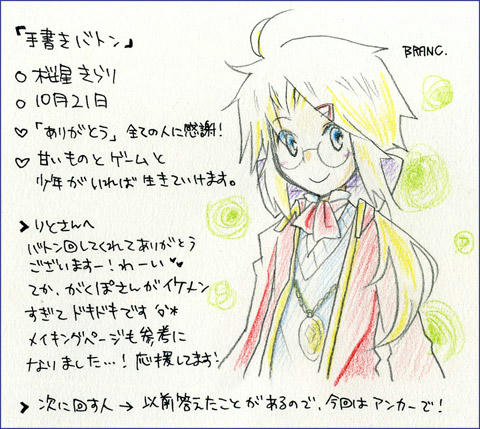 「手書きバトン」
BRANC.
○ 桜星きらり
○ 10月21日
♡ 「ありがとう」全ての人に感謝!
♡ 甘いものとゲームと
少年がいれば生きていけます。
> りとさんへ
バトン回してくれてありがとう
ございますー!わーい♥♥
てか、がくぽさんがイケメン
すぎてドキドキです
メイキングページも参考に
なりました…!応援してます!
> 次に回す人 → 以前答えたことがあるので、今回はアンカーで!